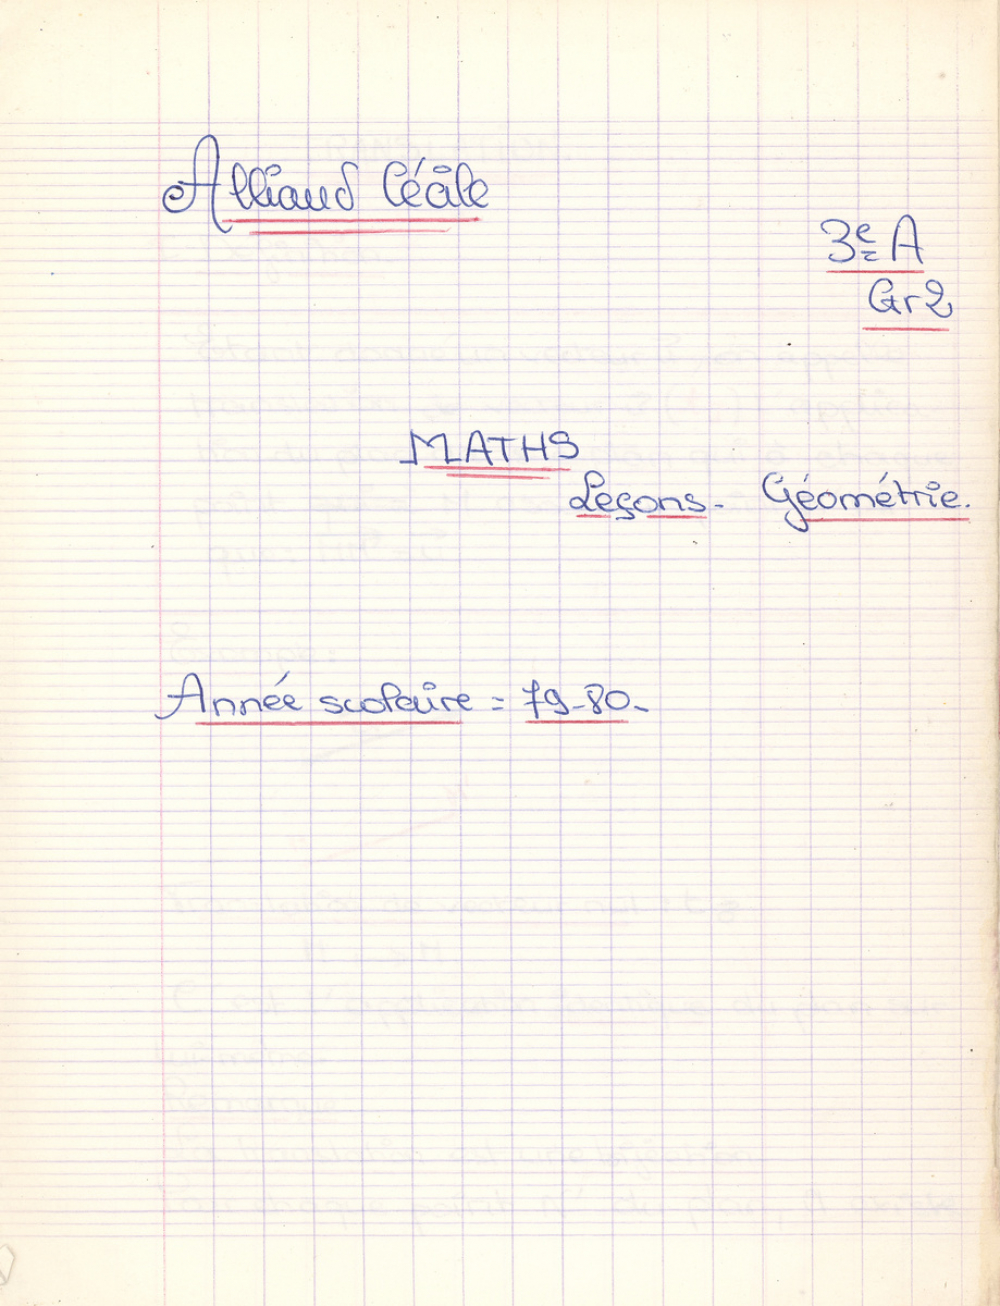 Alliaud Cécile
3e A
Gr 2
MATHS
Leçons - Géométrie.
Année scolaire = 79-80-